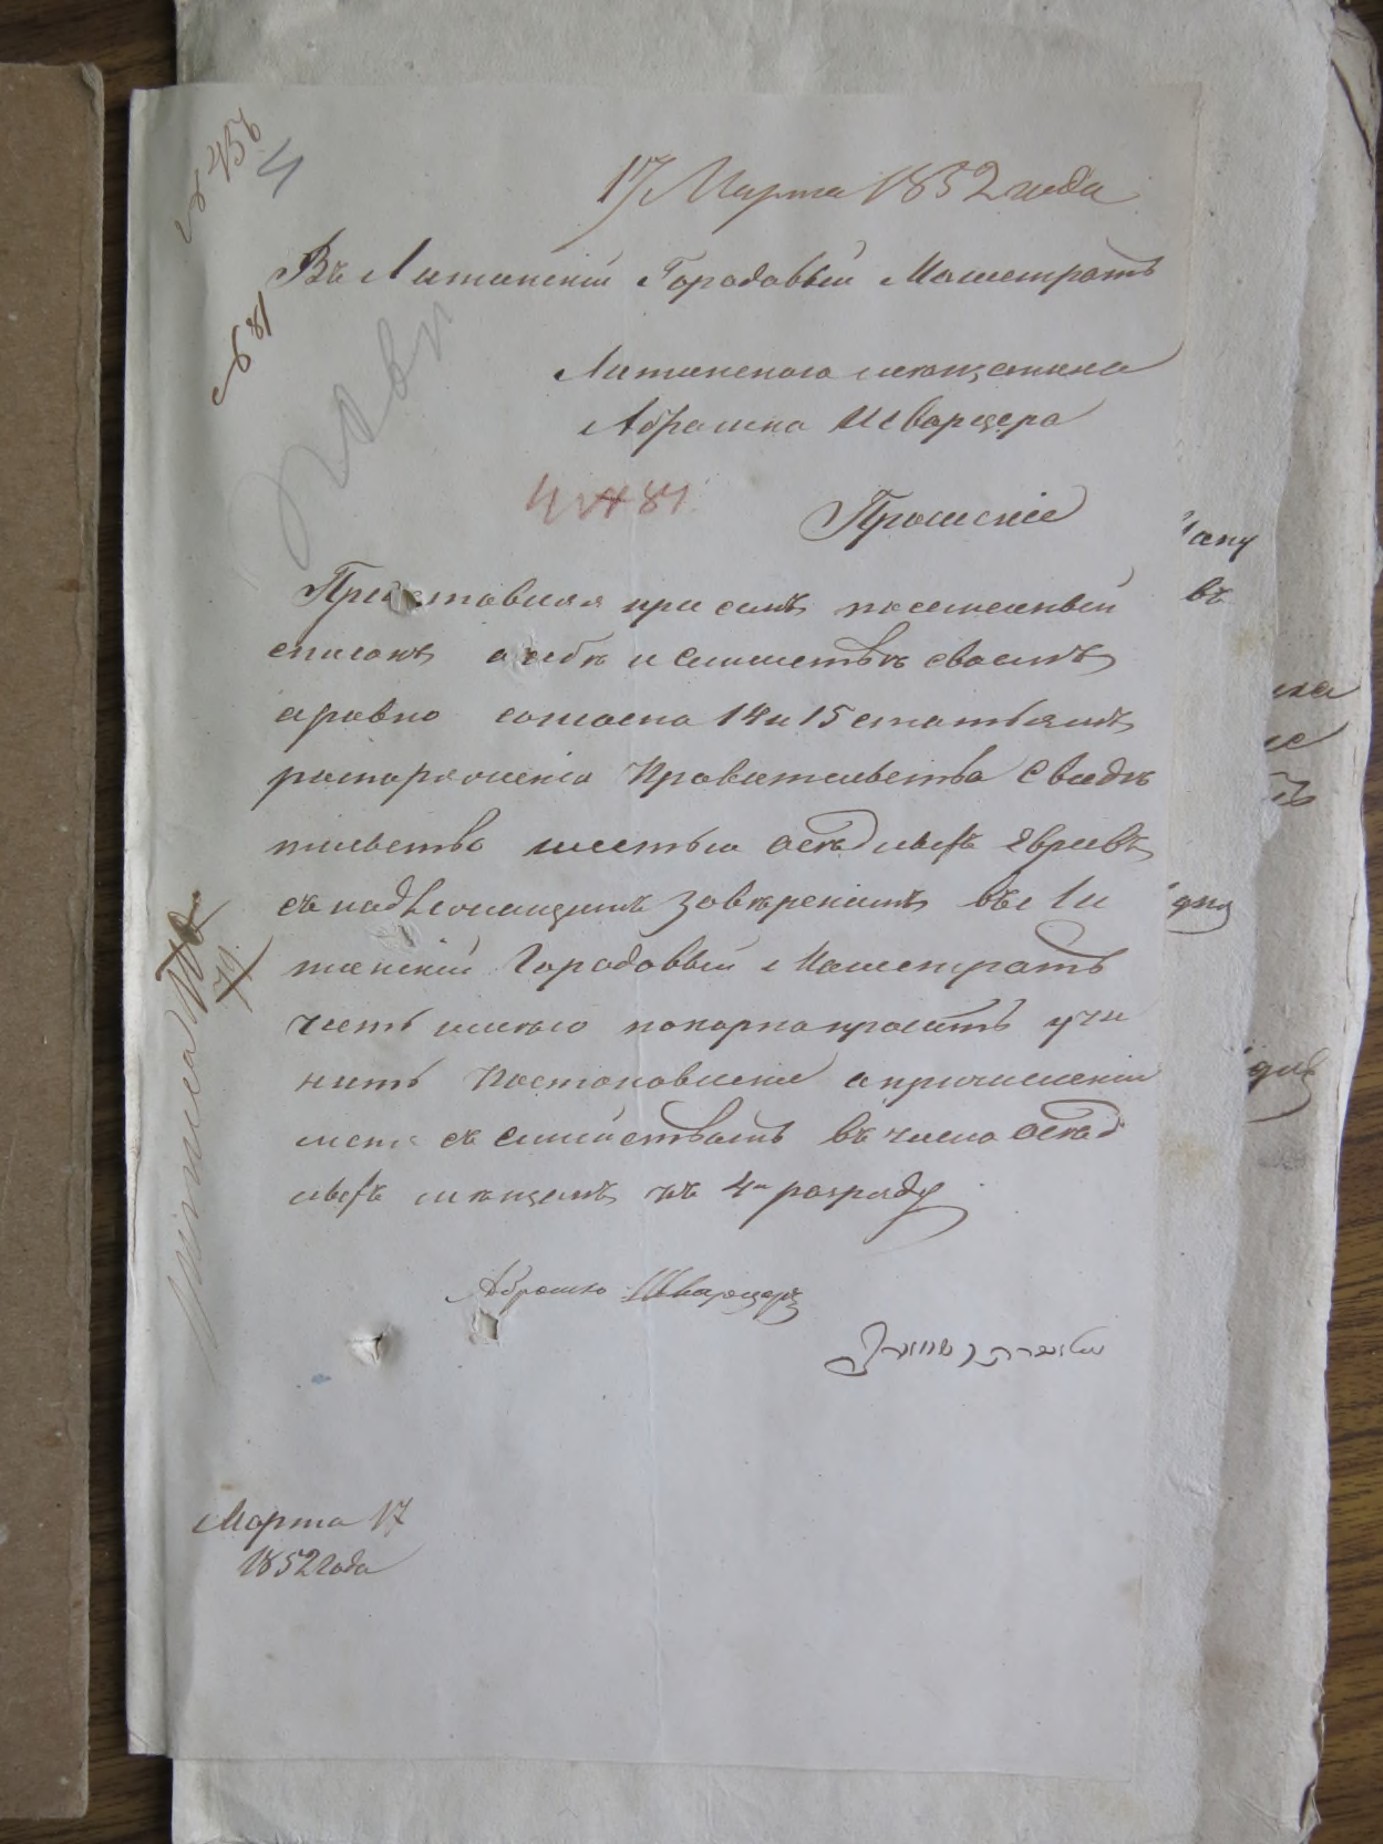 № 456
4
17 Марта 1852 года
Въ Литинскій Городовый Магистратъ
№ 81
Литинскаго мѣщанина
Абрашка Шварцера
4 № 81
Прошеніе
Представляя при семъ посемейный
списокъ о себѣ и симействѣ своемъ
аравно согласно 14 и 15 статьямъ
распоряженія Правительства Свидѣ
тельство шестью осѣдлыхъ Евреевъ
съ надлежащимъ завѣреніемъ въ Ли
тинскій Городовый Магистратъ
честь имѣю покорно просить учи
нить Постановленіе о причисленіи
меня съ симействомъ въ число осѣд
лыхъ мѣщанъ въ 4й разряду
Абрашко Шварцеръ
Марта 17
1852 года